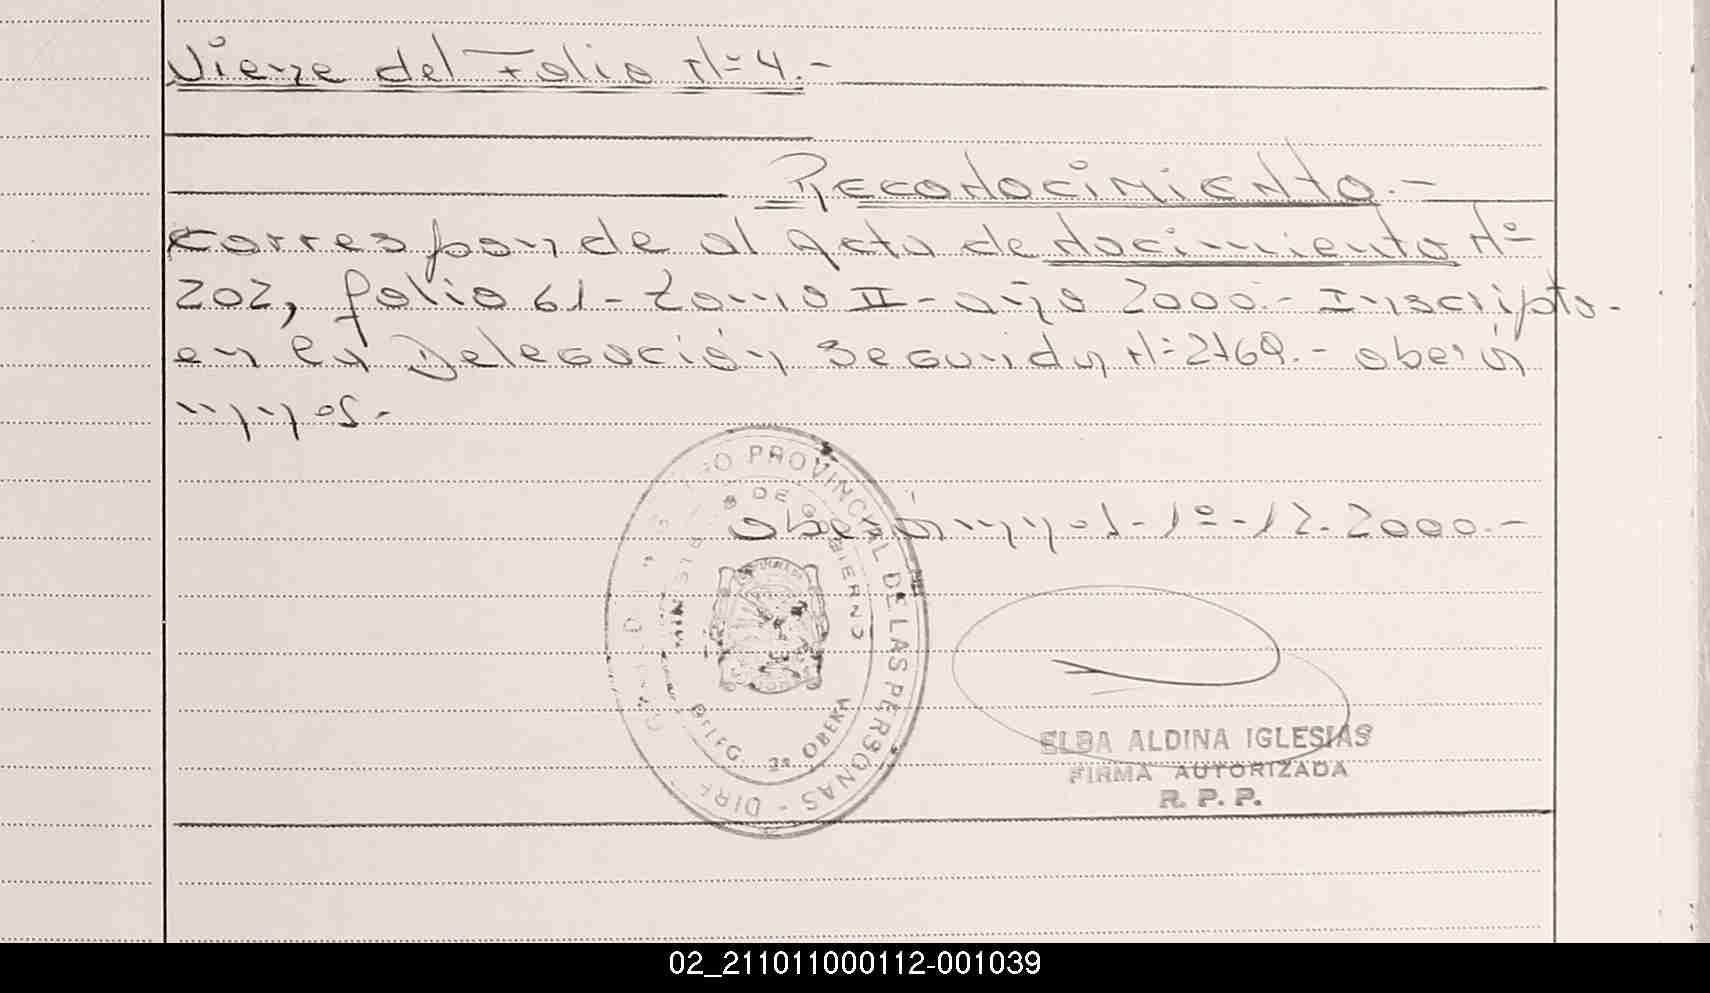 Viene del Folio Nº 4.-
Reconocimiento.-
Corresponde al Acta de Nacimiento Nº
202, folio 61- Tomo II- año 2000.- Inscripto-
en la Delegación Segunda, Nº 2769.- Oberá
Mnes.-
Oberá, Mnes- 1º-12-2000.-
PROVINCIAL DE LAS PERSONAS - DIRE
DE GOBIERNO
DELEG 2ª OBERA
ELBA ALDINA IGLESIAS
FIRMA AUTORIZADA
R. P. P.
02_211011000112-001039